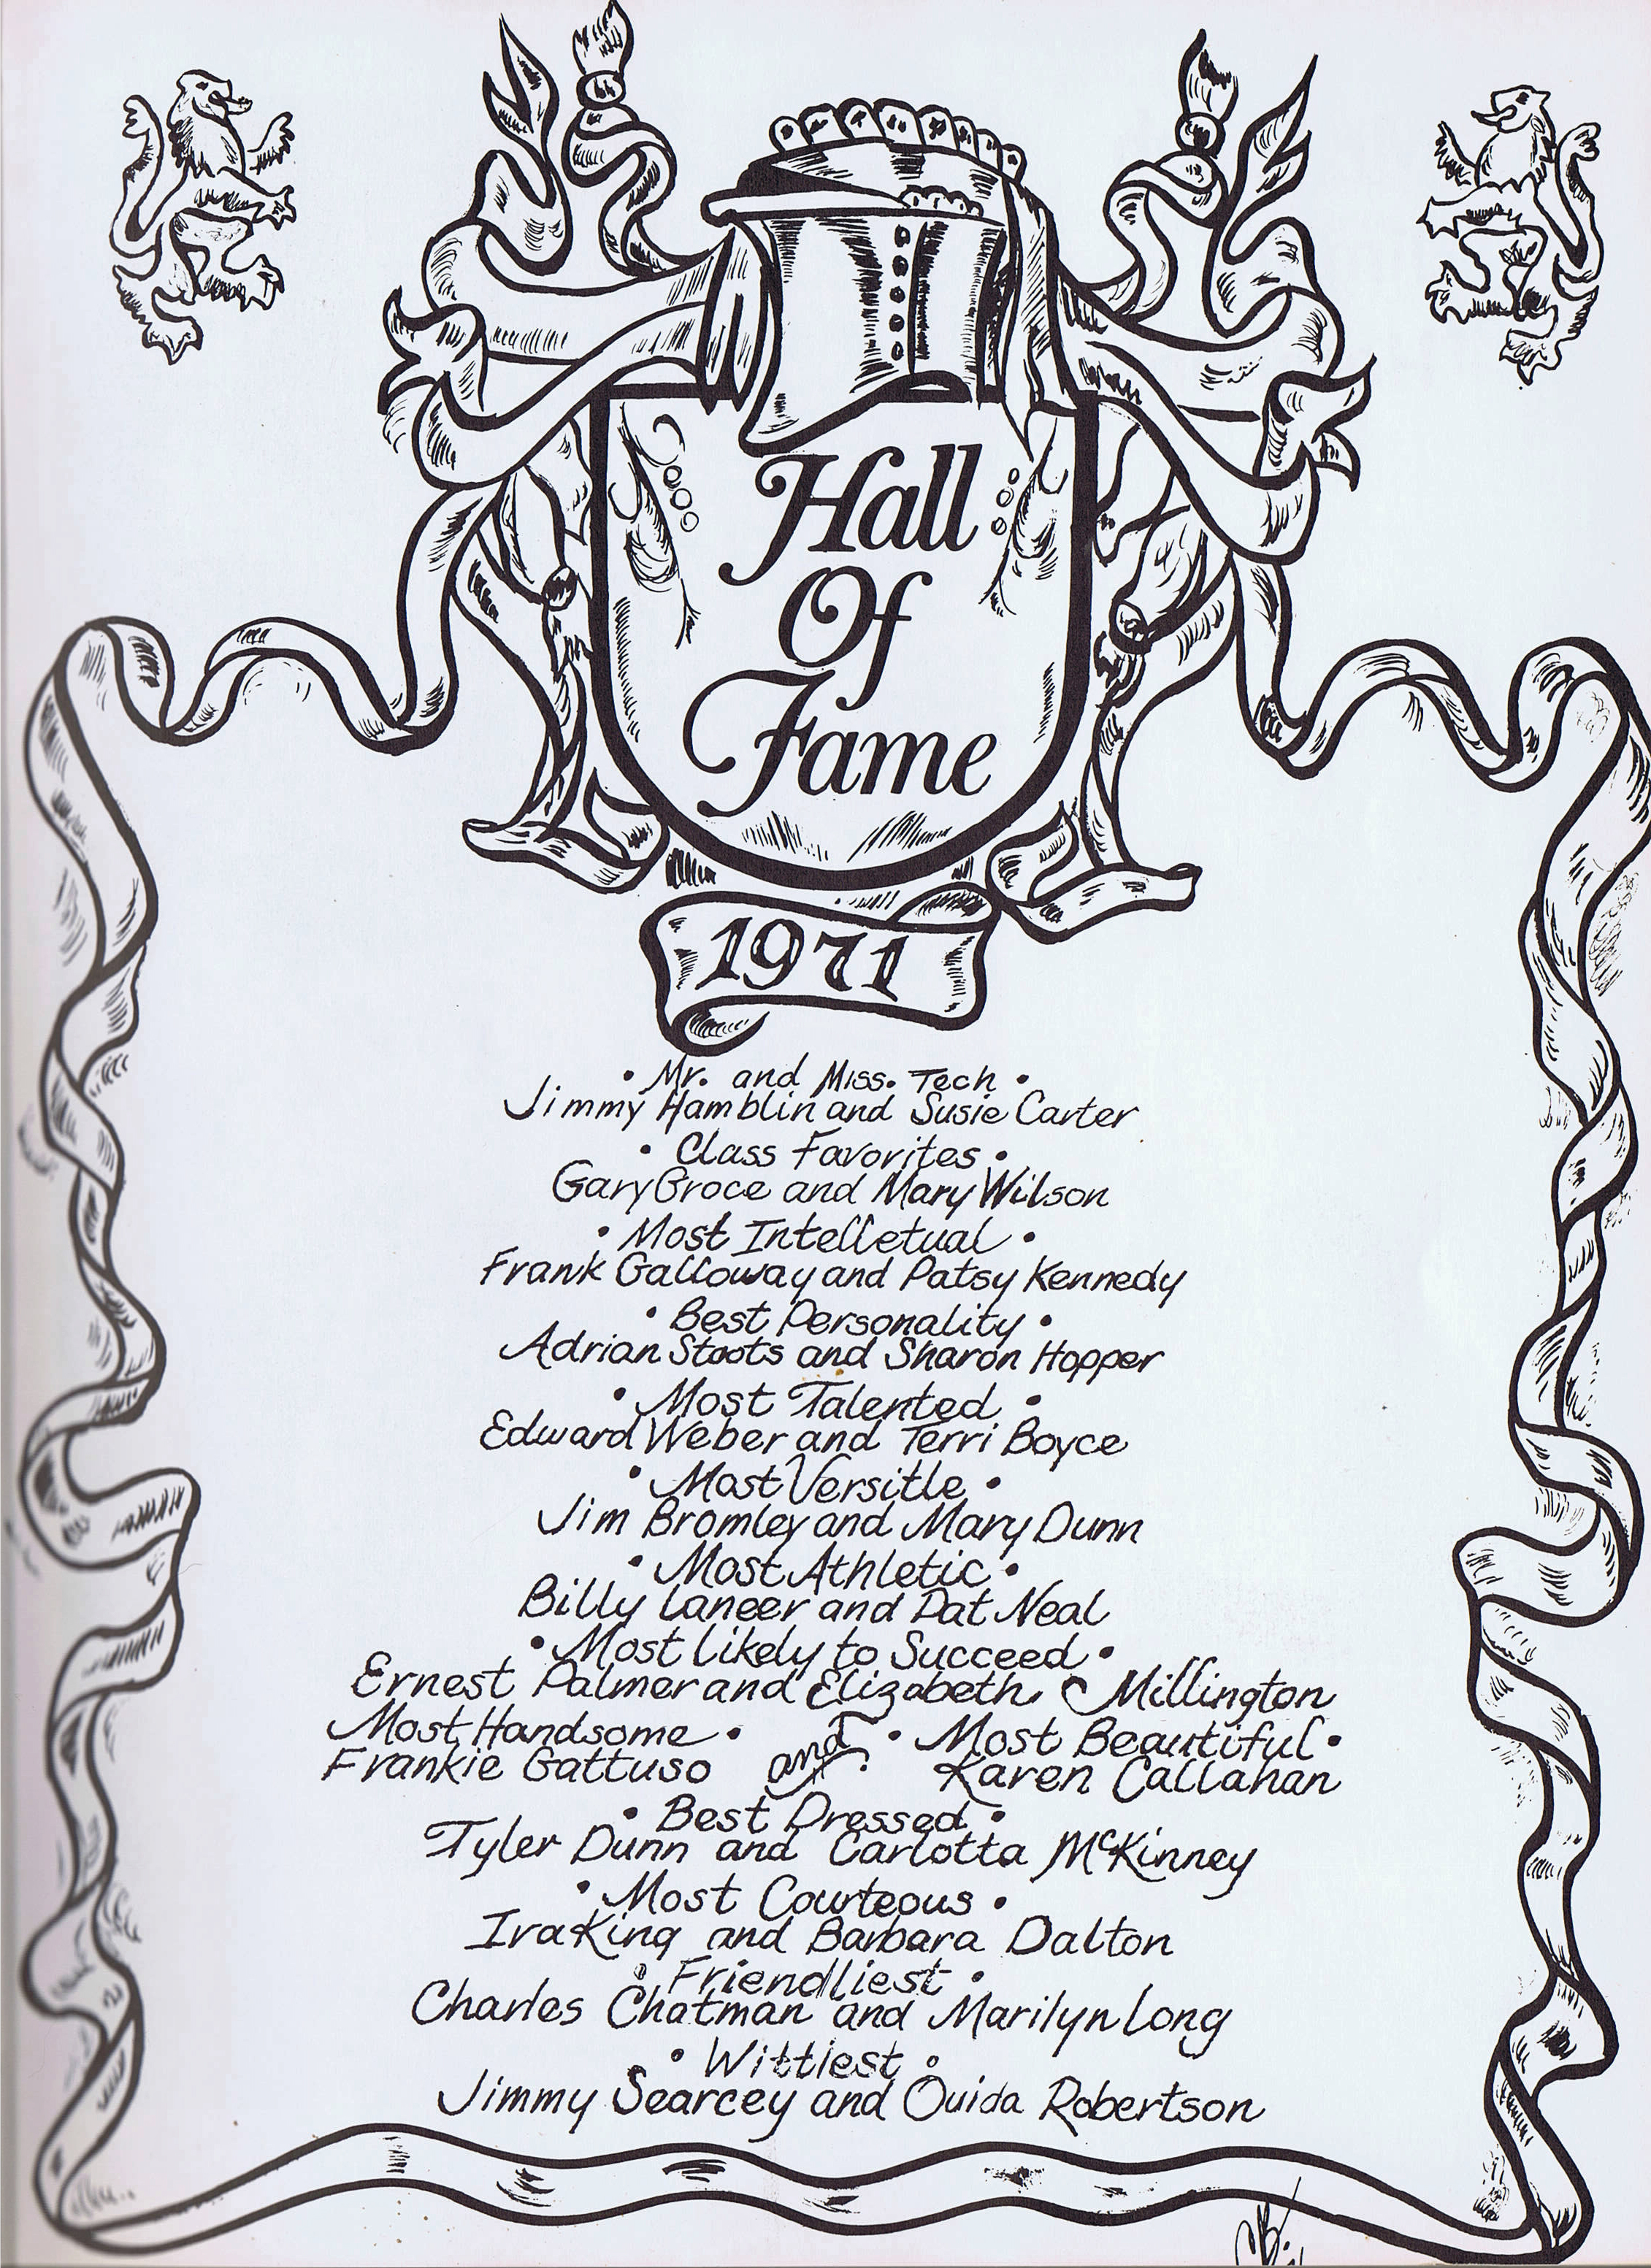 Hall
Of
Fame
1971
• Mr. and Miss. Tech •
Jimmy Hamblin and Susie Carter
• Class Favorites •
Gary Groce and Mary Wilson
• Most Intelletual •
Frank Galloway and Patsy Kennedy
• Best Personality •
Adrian Stoots and Sharon Hopper
• Most Talented •
Edward Weber and Terri Boyce
• Most Versitle •
Jim Bromley and Mary Dunn
• Most Athletic •
Billy Laneer and Pat Neal
• Most Likely to Succeed •
Ernest Palmer and Elizabeth Millington
Most Handsome • and • Most Beautiful •
Frankie Gattuso Karen Callahan
• Best Dressed •
Tyler Dunn and Carlotta McKinney
• Most Courteous •
Ira King and Barbara Dalton
• Friendliest •
Charles Chatman and Marilyn Long
• Wittiest •
Jimmy Searcey and Ouida Robertson